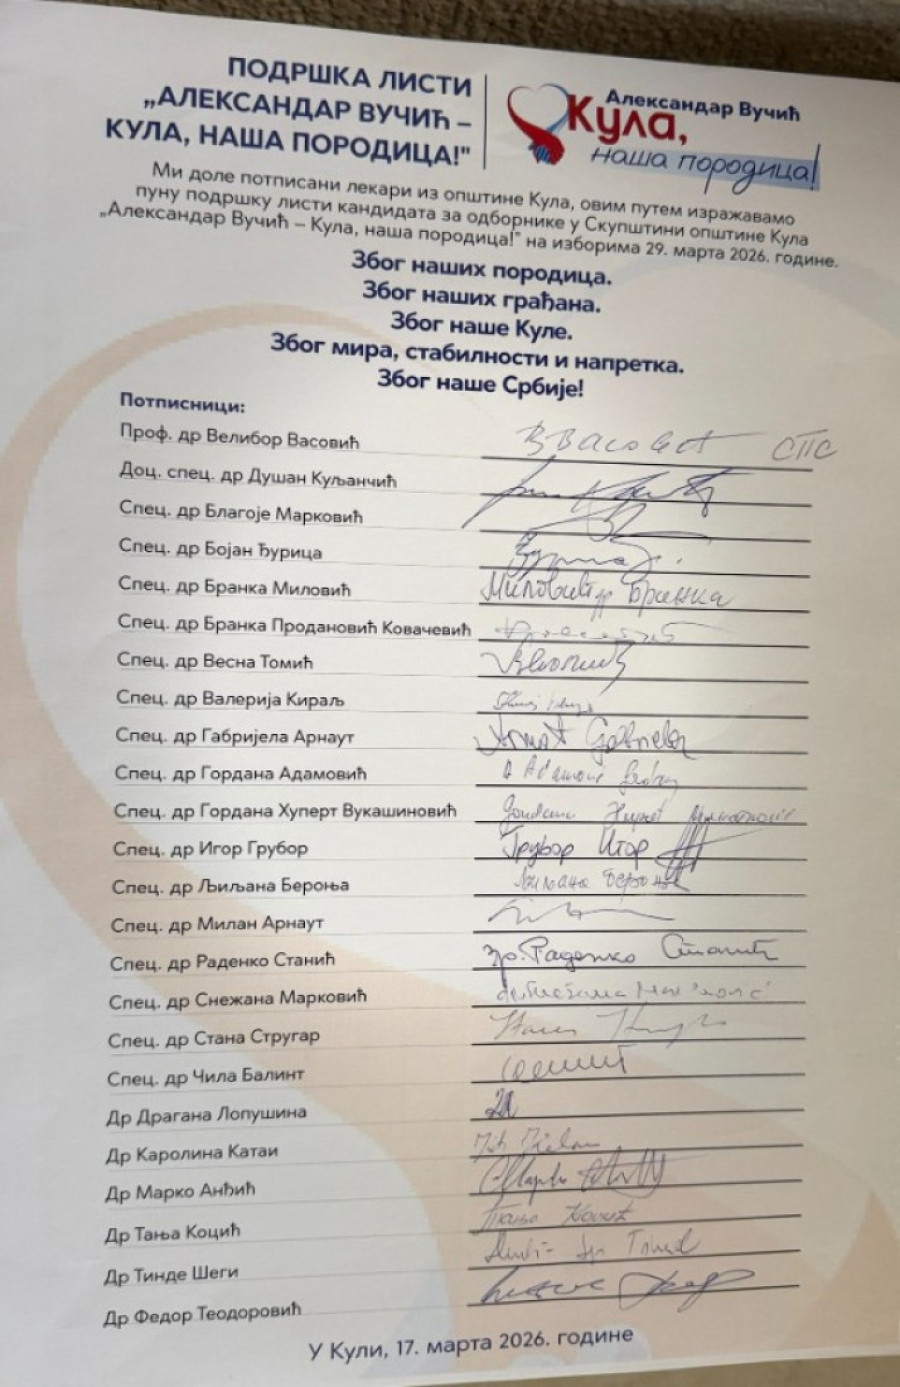 ПОДРШКА ЛИСТИ
„АЛЕКСАНДАР ВУЧИЋ –
КУЛА, НАША ПОРОДИЦА!"
Александар Вучић
Кула,
наша породица!
Ми доле потписани лекари из општине Кула, овим путем изражавамо
пуну подршку листи кандидата за одборнике у Скупштини општине Кула
„Александар Вучић – Кула, наша породица!" на изборима 29. марта 2026. године.
Због наших породица.
Због наших грађана.
Због наше Куле.
Због мира, стабилности и напретка.
Због наше Србије!
Потписници:
Проф. др Велибор Васовић СПС
Доц. спец. др Душан Куљанчић
Спец. др Благоје Марковић
Спец. др Бојан Ђурица
Спец. др Бранка Миловић Миловић др Бранка
Спец. др Бранка Продановић Ковачевић
Спец. др Весна Томић
Спец. др Валерија Кираљ
Спец. др Габријела Арнаут
Спец. др Гордана Адамовић
Спец. др Гордана Хуперт Вукашиновић
Спец. др Игор Грубор Грубор Игор
Спец. др Љиљана Бероња Љиљана Бероња
Спец. др Милан Арнаут
Спец. др Раденко Станић др. Раденко Станић
Спец. др Снежана Марковић
Спец. др Стана Стругар
Спец. др Чила Балинт
Др Драгана Лопушина
Др Каролина Катаи
Др Марко Анђић
Др Тања Коцић
Др Тинде Шеги
Др Федор Теодоровић
У Кули, 17. марта 2026. године